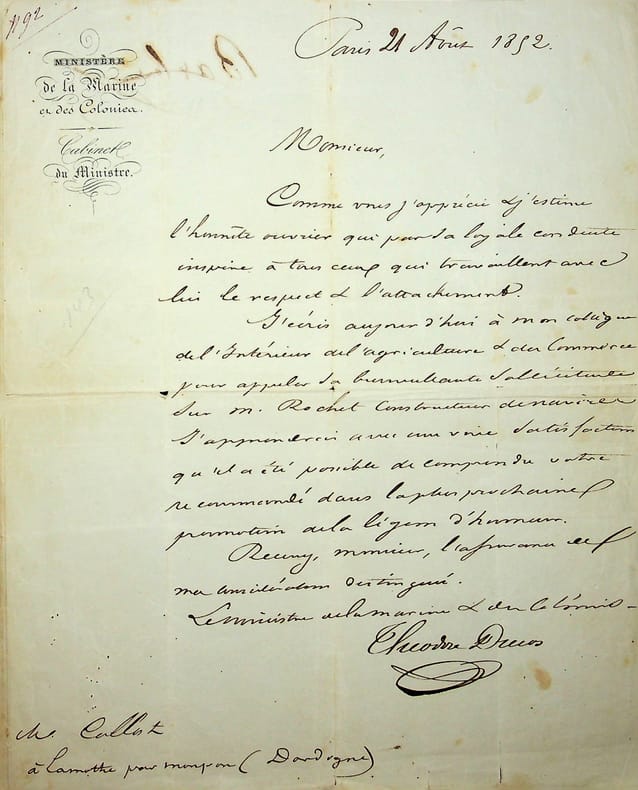 1192
Paris 21 Août 1852.
MINISTÈRE
de la Marine
et des Colonies.
Cabinet
du Ministre.
143
Monsieur,
Comme vous j'apprécie & j'estime
l'honnête ouvrier qui par sa loyale conduite
inspire à tous ceux qui travaillent avec
lui le respect & l'attachement.
J'écris aujourd'hui à mon collègue
de l'Intérieur de l'agriculture & du Commerce
pour appeler sa bienveillante sollicitude
sur M. Rochet Constructeur de navires
J'apprendrais avec une vive satisfaction
qu'il a été possible de comprendre votre
recommandé dans la plus prochaine
promotion de la légion d'honneur.
Recevez, monsieur, l'assurance de
ma considération distinguée.
Le ministre de la marine & des Colonies
Théodore Ducos
à Lamothe par monpon (Dordogne)